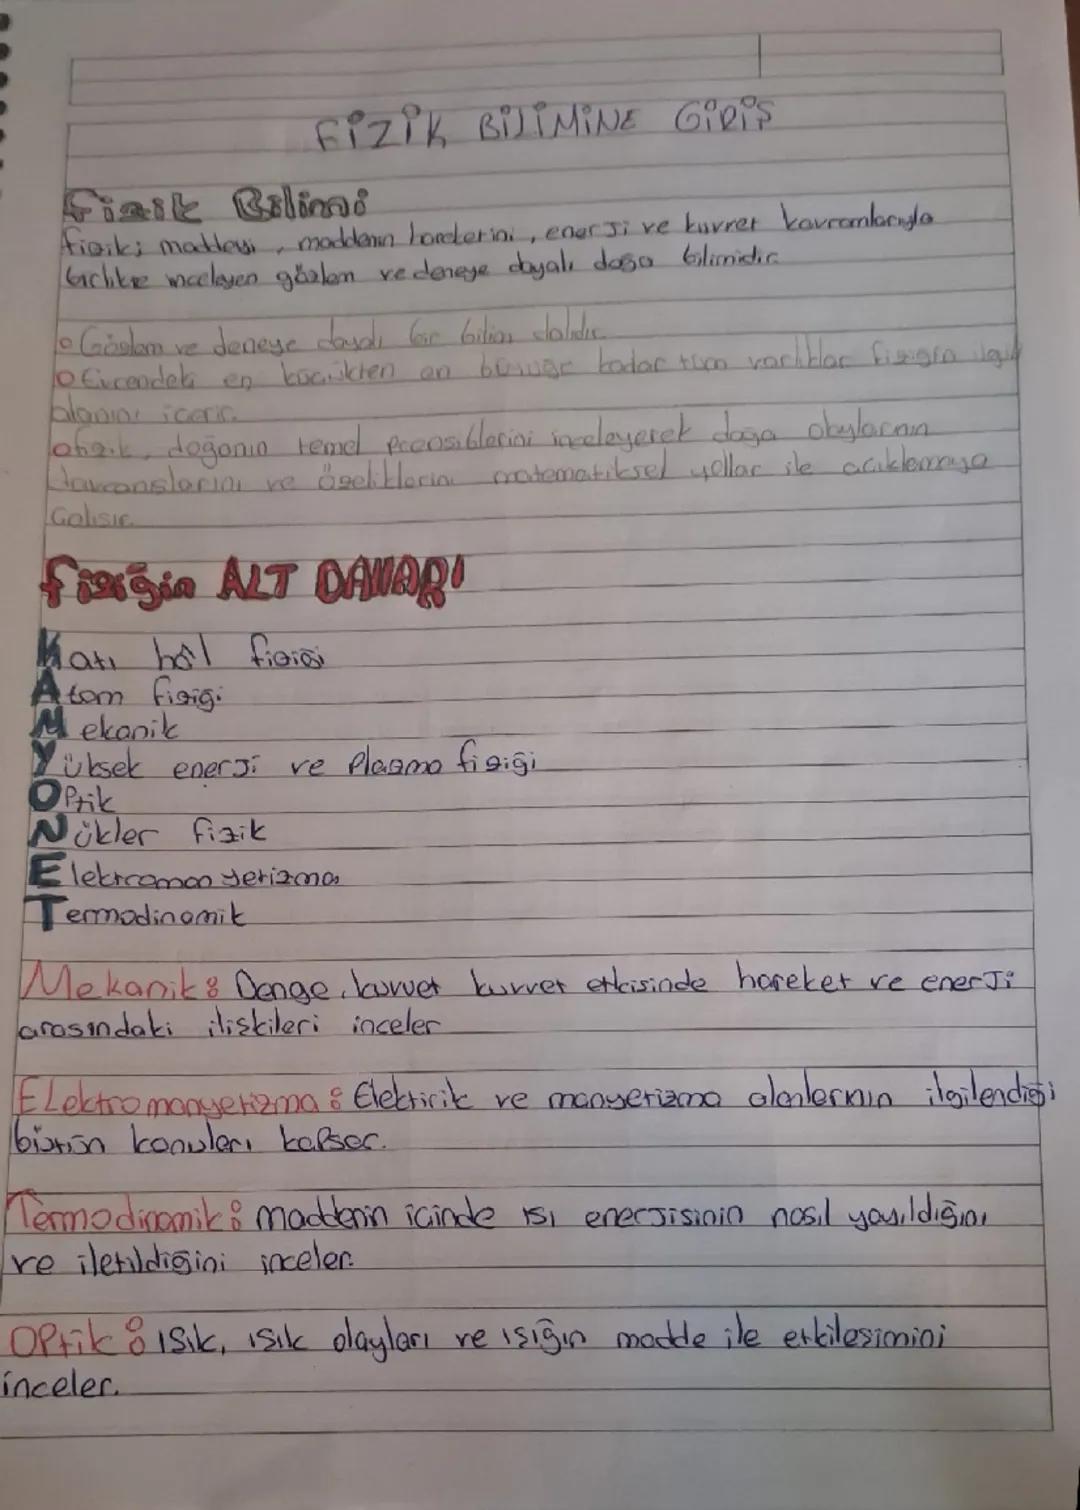 FİZİK BİLİMİNE GİRİŞ
Fizik Bilimi
fizik; maddeyi, maddenin hareketini, enerji ve kuvvet kavramlarıyla
birlikte inceleyen gözlem ve deneye dayalı doğa bilimidir.
o Gözlem ve deneye dayalı bir bilim dalıdır.
o Evrendeki en küçükten en büyüğe kadar tüm varlıklar fiziğin ilgi
alanını içerir.
o fizik, doğanın temel prensiblerini inceleyerek doğa olaylarının
davranışlarını ve özeliklerini matematiksel yollar ile açıklamaya
Çalışır.
fiziğin ALT DALLARI
Katı hâl fiziği
Atom fiziği
Mekanik
Yüksek enerji ve Plazma fiziği
OPtik
Nükler fizik
Elektromanyetizma
Termodinamik
Mekanik: Denge, kuvvet kuvvet etkisinde hareket ve enerji
arasındaki ilişkileri inceler
ELektromanyetizma: Elektirik ve manyetizma alanlarının ilgilendiği
bütün konuları kaPsar.
Termodinamik: maddenin içinde ısı enerjisinin nasıl yayıldığını
ve iletildiğini inceler.
OPtik: ışık, ışık olayları ve ışığın madde ile etkileşimini
inceler.